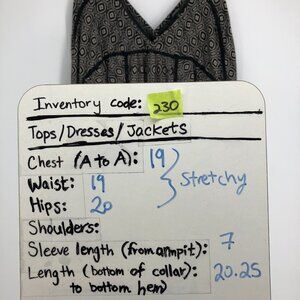 Inventory code: 230
Tops/Dresses/Jackets
Chest (A to A): 19
Waist: 19
Hips: 20
Stretchy
Shoulders:
Sleeve length (from armpit): 7
Length (bottom of collar): 20.25
to bottom hem)